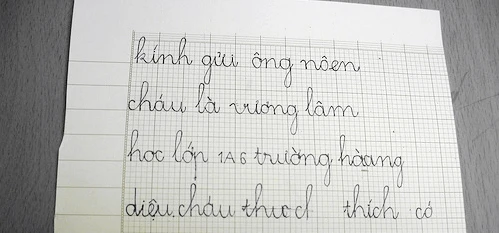 kính gửi ông nôen
cháu là vương lâm
học lớp 1A6 trường hoàng
diệu. cháu thích có